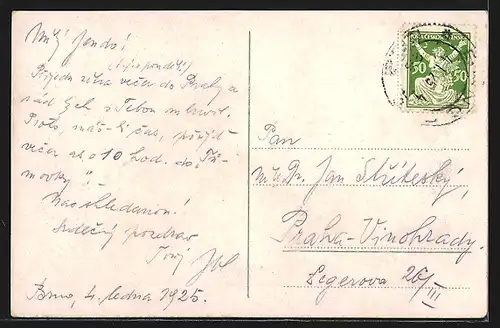 Milý Jendo!
(t.j. v pondělí!)
Přijedu zítra večer do Prahy a
rád bych s Tebou mluvil.
Proto, máš-li čas, přijď
večer as o 10 hod. do "Šumovky".
Na shledanou!
Srdečný pozdrav
Tvůj
Brno, 4. ledna 1925.
POŠTA ČESKOSLOVENSKÁ
50 50
Pan
Dr. Jan Stříteský,
Praha-Vinohrady.
Legerova 26/III